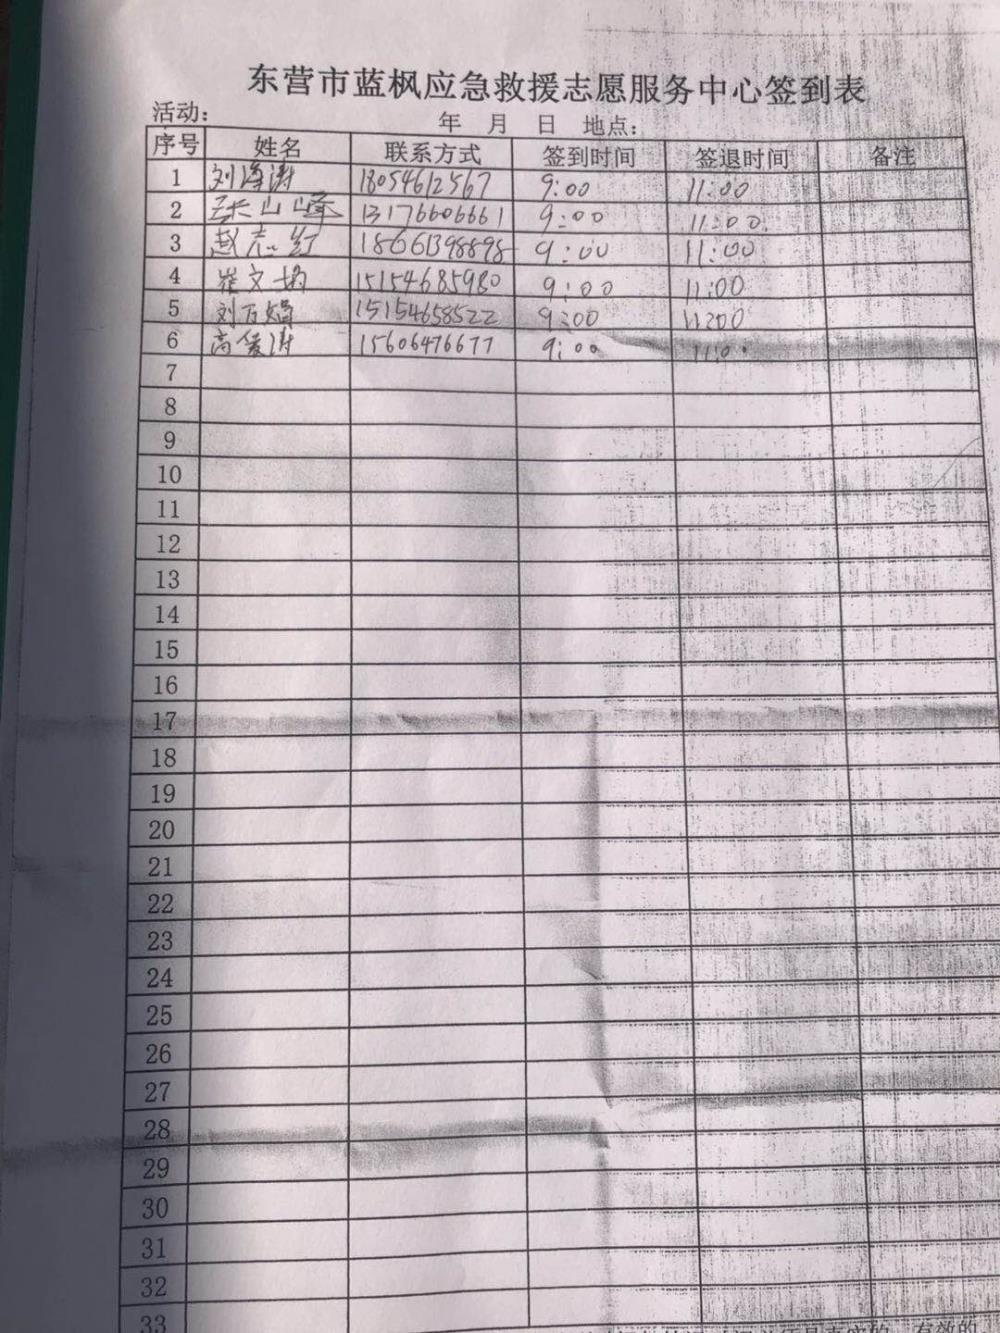 东营市蓝枫应急救援志愿服务中心签到表
活动： 年 月 日 地点：
序号 姓名 联系方式 签到时间 签退时间 备注
1 刘海涛 18054612567 9:00 11:00
2 张山峰 13176606661 9:00 11:00.
3 赵志红 18661398898 9:00 11:00
4 崔文娟 15154685980 9:00 11:00
5 刘万娟 15154658522 9:00 11:00
6 高爱涛 15606476677 9:00 11:00
7
8
9
10
11
12
13
14
15
16
17
18
19
20
21
22
23
24
25
26
27
28
29
30
31
32
33